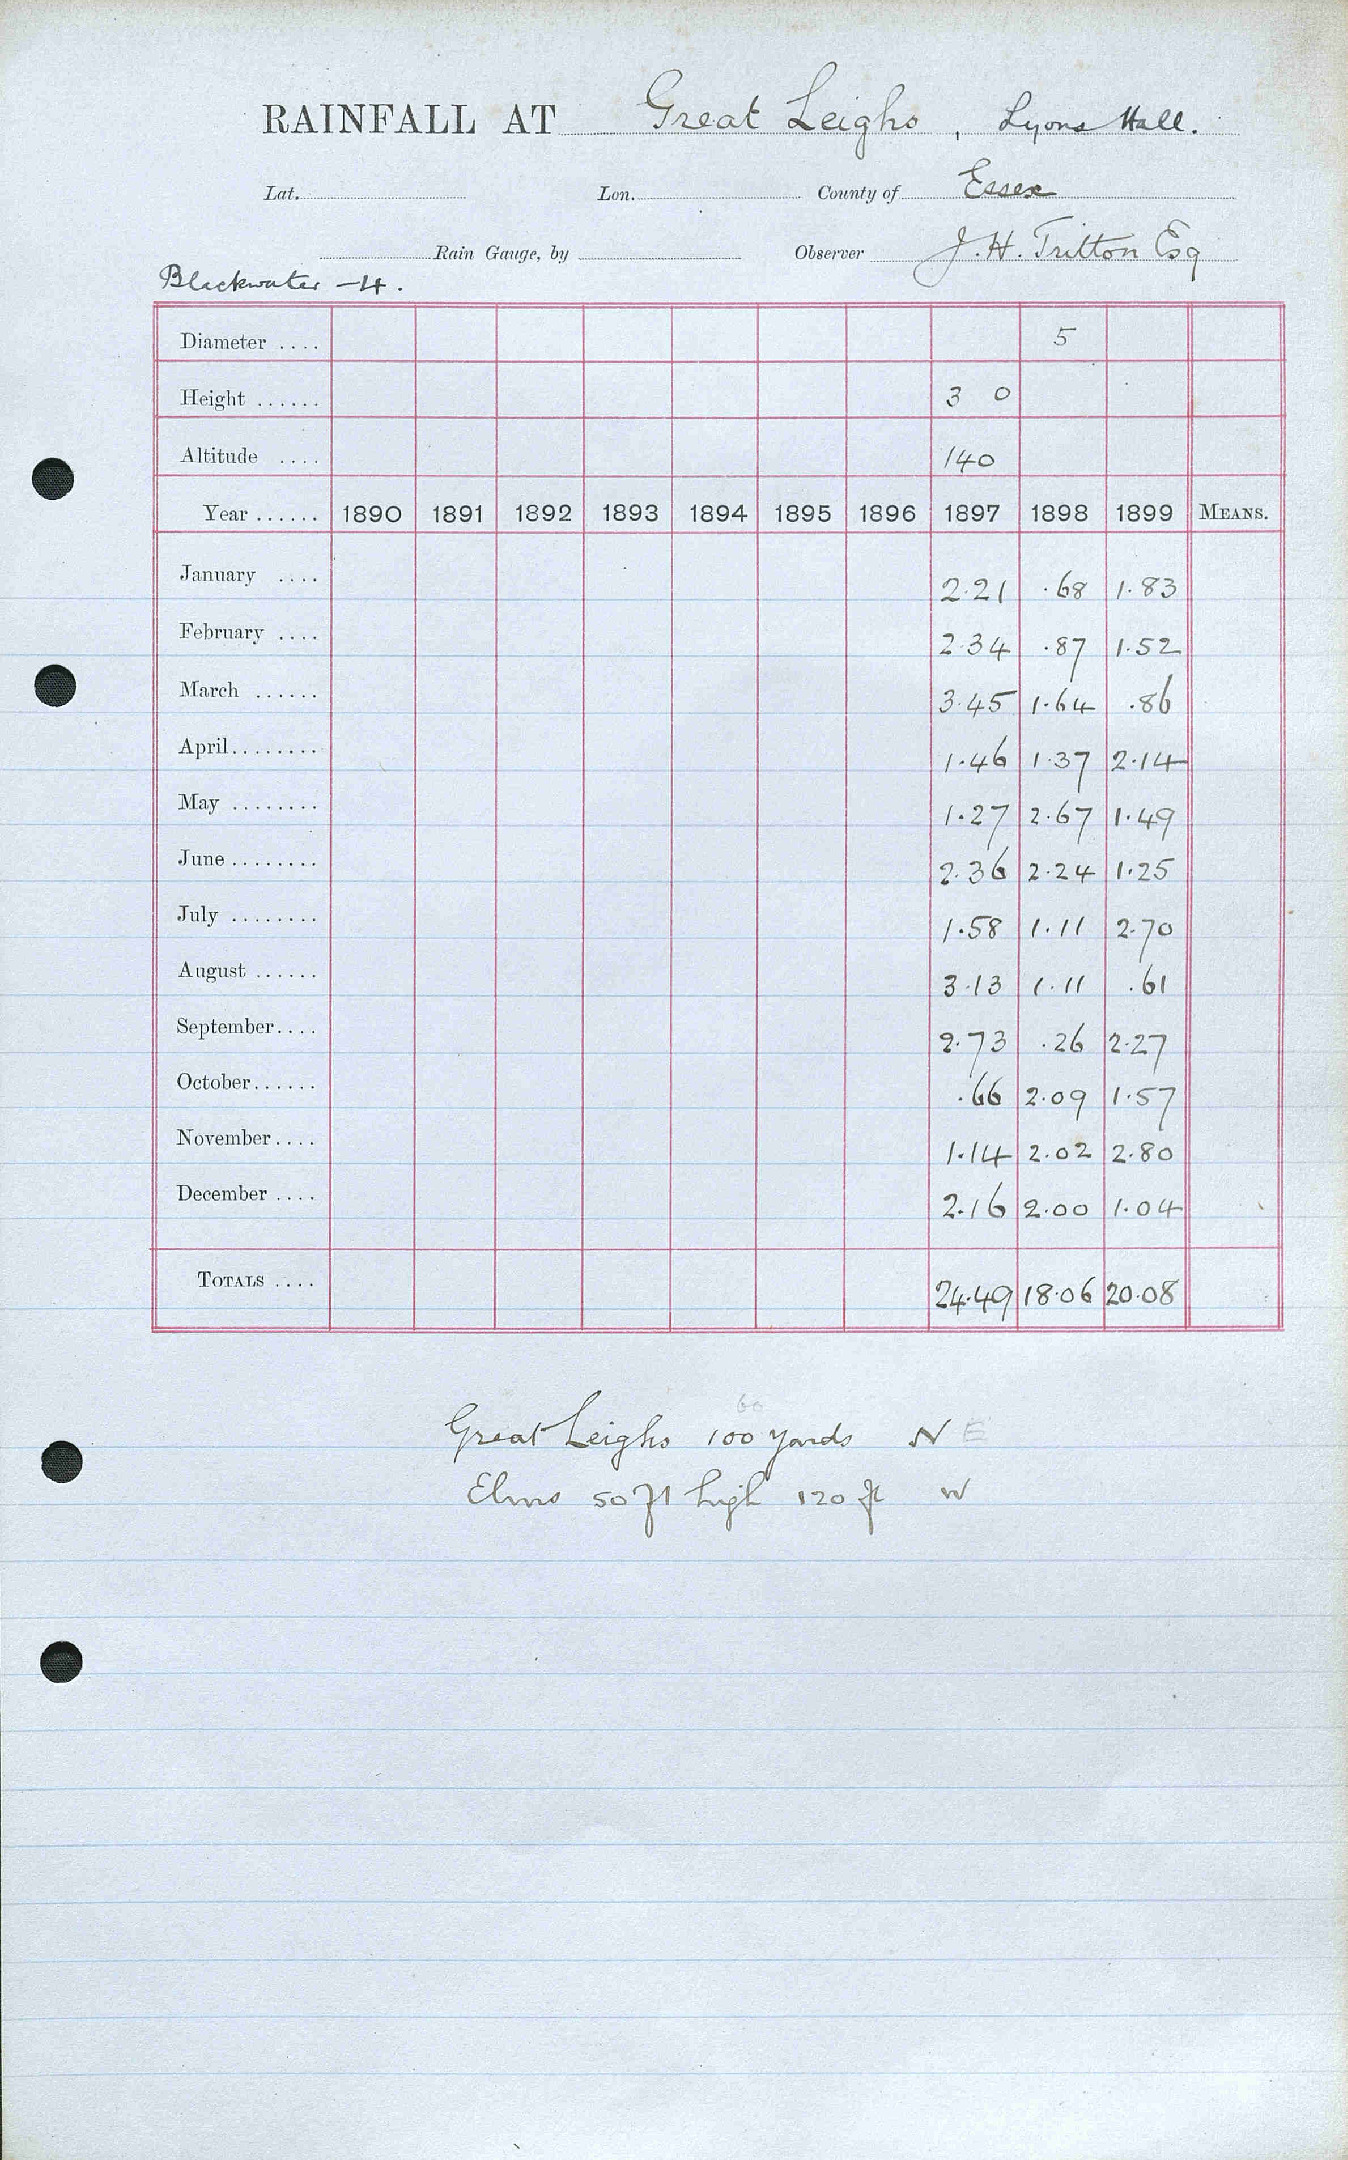 RAINFALL AT Great Leighs, Lyons Hall.
Lat. Lon. County of Essex
Rain Gauge, by Observer J. H. Tritton Esq
Blackwater - 4.
Diameter .... 5
Height ...... 3 0
Altitude .... 140
Year ...... 1890 1891 1892 1893 1894 1895 1896 1897 1898 1899 MEANS.
January .... 2.21 .68 1.83
February .... 2.34 .87 1.52
March ...... 3.45 1.64 .86
April........ 1.46 1.37 2.14
May ........ 1.27 2.67 1.49
June........ 2.36 2.24 1.25
July ........ 1.58 1.11 2.70
August ...... 3.13 1.11 .61
September.... 2.73 .26 2.27
October...... .66 2.09 1.57
November.... 1.14 2.02 2.80
December .... 2.16 2.00 1.04
TOTALS .... 24.49 18.06 20.08
60
Great Leighs 100 yards N E
Elms 50 ft high 120 ft W